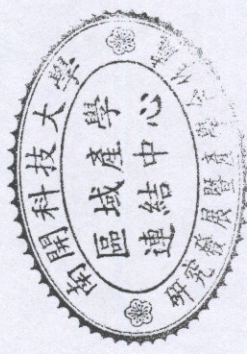 南開科技大學
區域產學
連結中心
研究發展暨產學